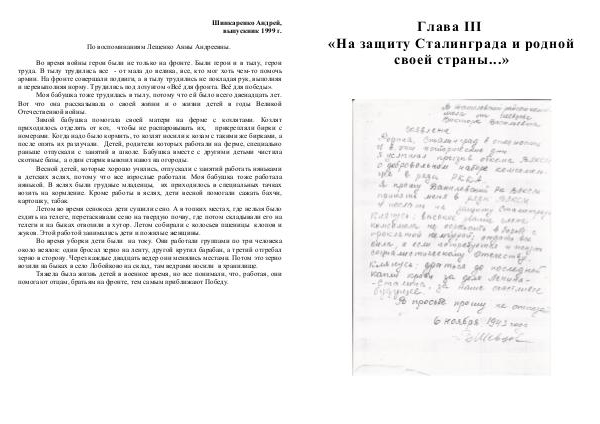 Шинкаренко Андрей,
выпускник 1999 г.
По воспоминаниям Лещенко Анны Андреевны.
Во время войны герои были не только на фронте. Были герои и в тылу, герои
труда. В тылу трудились все - от мала до велика, все, кто мог хоть чем-то помочь
армии. На фронте совершали подвиги, а в тылу трудились не покладая рук, выполняя
и перевыполняя норму. Трудились под лозунгом «Всё для фронта. Всё для победы».
Моя бабушка тоже трудилась в тылу, потому что ей было всего двенадцать лет.
Вот что она рассказывала о своей жизни и о жизни детей в годы Великой
Отечественной войны.
Зимой бабушка помогала своей матери на ферме с козлятами. Козлят
приходилось отделять от коз, чтобы не распаровывать их, прикрепляли бирки с
номерами. Когда надо было кормить, то козлят носили к козам с такими же бирками, а
после опять их разлучали. Детей, родители которых работали на ферме, специально
раньше отпускали с занятий в школе. Бабушка вместе с другими детьми чистила
скотные базы, а один старик вывозил навоз на огороды.
Весной детей, которые хорошо учились, отпускали с занятий работать няньками
в детских яслях, потому что все взрослые работали. Моя бабушка тоже работала
нянькой. В яслях были грудные младенцы, их приходилось в специальных тачках
возить на кормление. Кроме работы в яслях, дети возили навоз, помогали сажать бахчу,
картошку, табак.
Летом во время сенокоса дети сушили сено. А в топких местах, где нельзя было
ездить на телеге, перетаскивали сено на твердую почву, где потом складывали его на
телеги и на быках отвозили в хутор. Летом собирали с колосьев пшеницы клопов и
жуков. Этой работой занимались дети и пожилые женщины.
Во время уборки дети были на току. Они работали группами по три человека
около веялок: один бросал зерно на ленту, другой крутил барабан, а третий отгребал
зерно в сторону. Через каждые двадцать ведер они менялись местами. Потом это зерно
возили на быках в село Лобойково на склад, там ведрами носили в хранилище.
Тяжела была жизнь детей в военное время, но все понимали, что, работая, они
помогают отцам, братьям на фронте, тем самым приближают Победу.
Глава III
«На защиту Сталинграда и родной
своей страны...»
Родной Сталинград в опасности
в ряды РККА
Я прошу
принять меня в ряды
на защиту Сталинграда
Клянусь
социалистическому Отечеству
Клянусь драться до последней
капли крови за дело Ленина-
Сталина, за наше счастливое
будущее.
6 ноября